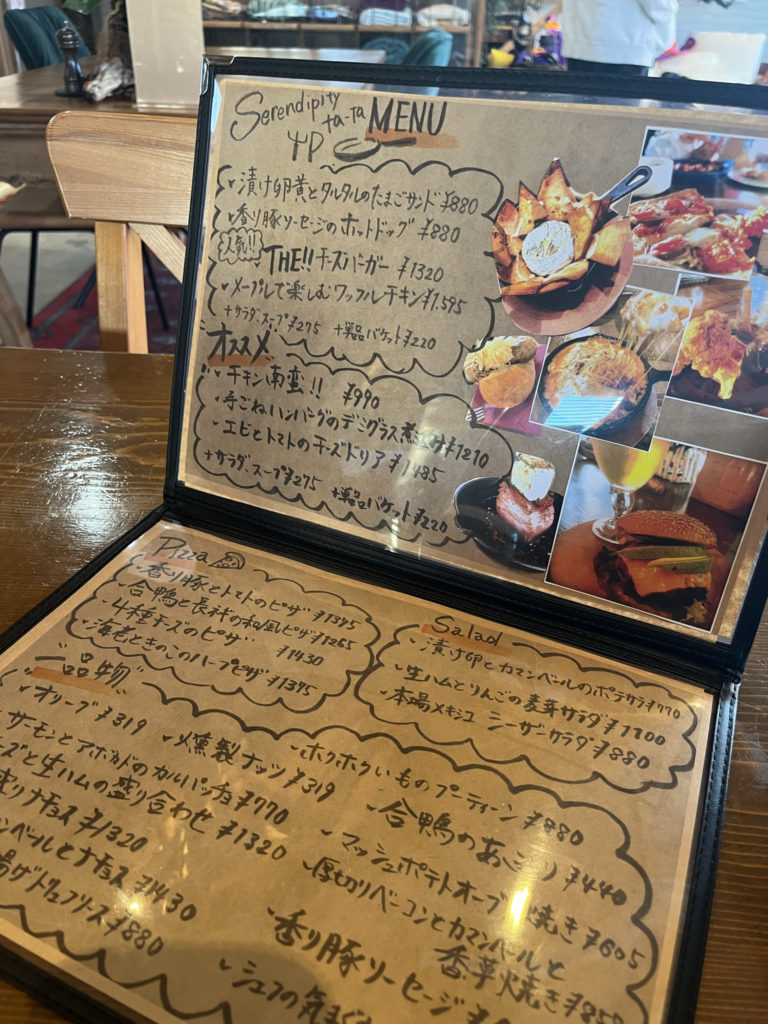 Serendipity
ta-ta MENU
・漬け卵黄とタルタルのたまごサンド ¥880
・香り豚ソーセージのホットドッグ ¥880
人気!!
・THE!! チーズバーガー ¥1320
・メープルで楽しむワッフルチキン ¥1,595
+サラダ、スープ ¥275 +単品バケット ¥220
オススメ
・チキン南蛮!! ¥990
・手ごねハンバーグのデミグラス煮込み ¥1210
・エビとトマトのチーズドリア ¥1485
+サラダ、スープ ¥275 +単品バケット ¥220
Pizza
・香り豚とトマトのピザ ¥1375
合鴨と長ネギの和風ピザ ¥1265
・4種チーズのピザ ¥1430
・海老ときのこのハーブピザ ¥1375
Salad
・漬け卵とカマンベールのポテサラ ¥770
・生ハムとりんごの麦芽サラダ ¥1100
・本場メキシコ シーザーサラダ ¥880
一品物
・オリーブ ¥319
・燻製ナッツ ¥319
・ホクホクいものプーティーン ¥880
サーモンとアボカドのカルパッチョ ¥770
・合鴨のあ
¥440
ーズと生ハムの盛り合わせ ¥1320
・マッシュポテトオーブン焼き ¥605
ナチョス ¥1320
・厚切りベーコンとカマンベールと
香草焼き ¥85
ンベールとナチョス ¥1430
・香り豚ソーセージ
¥880
・シェフの気まぐ